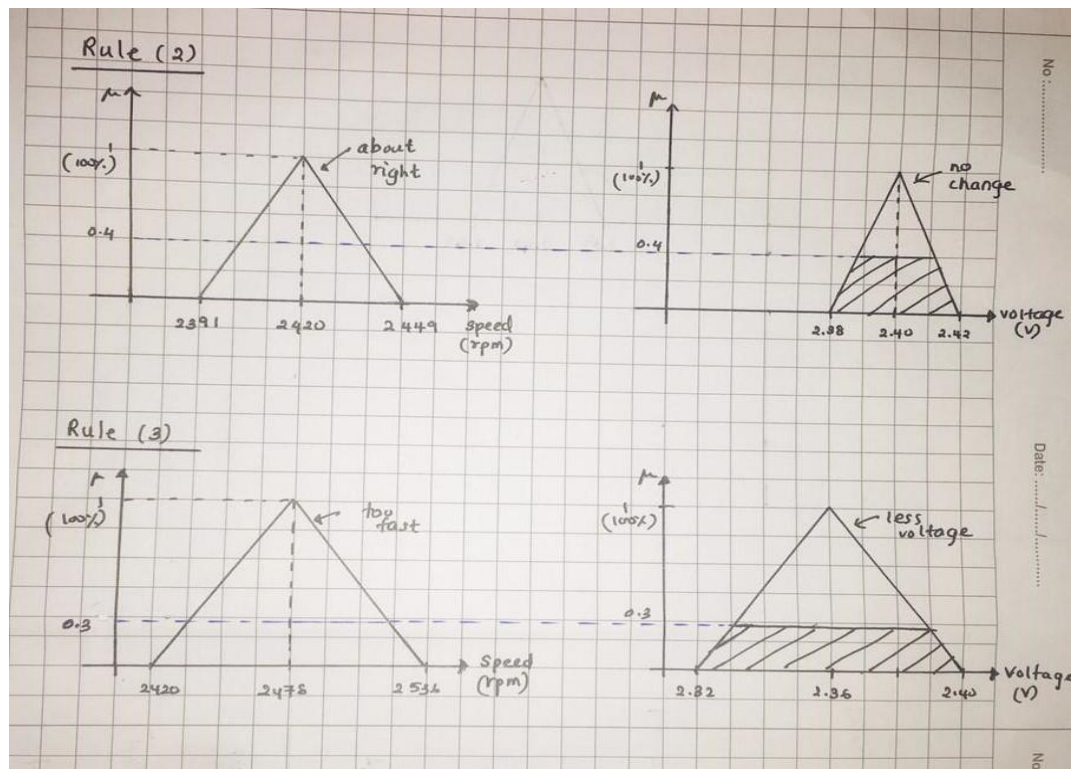 Rule (2)
μ
1
(100%)
about
right
0.4
2391
2420
2449
speed
(rpm)
μ
1
(100%)
no
change
0.4
2.38
2.40
2.42
voltage
(V)
Rule (3)
μ
1
(100%)
too
fast
0.3
2420
2478
2536
speed
(rpm)
μ
1
(100%)
less
voltage
0.3
2.32
2.36
2.40
voltage
(V)
No :
Date:
No